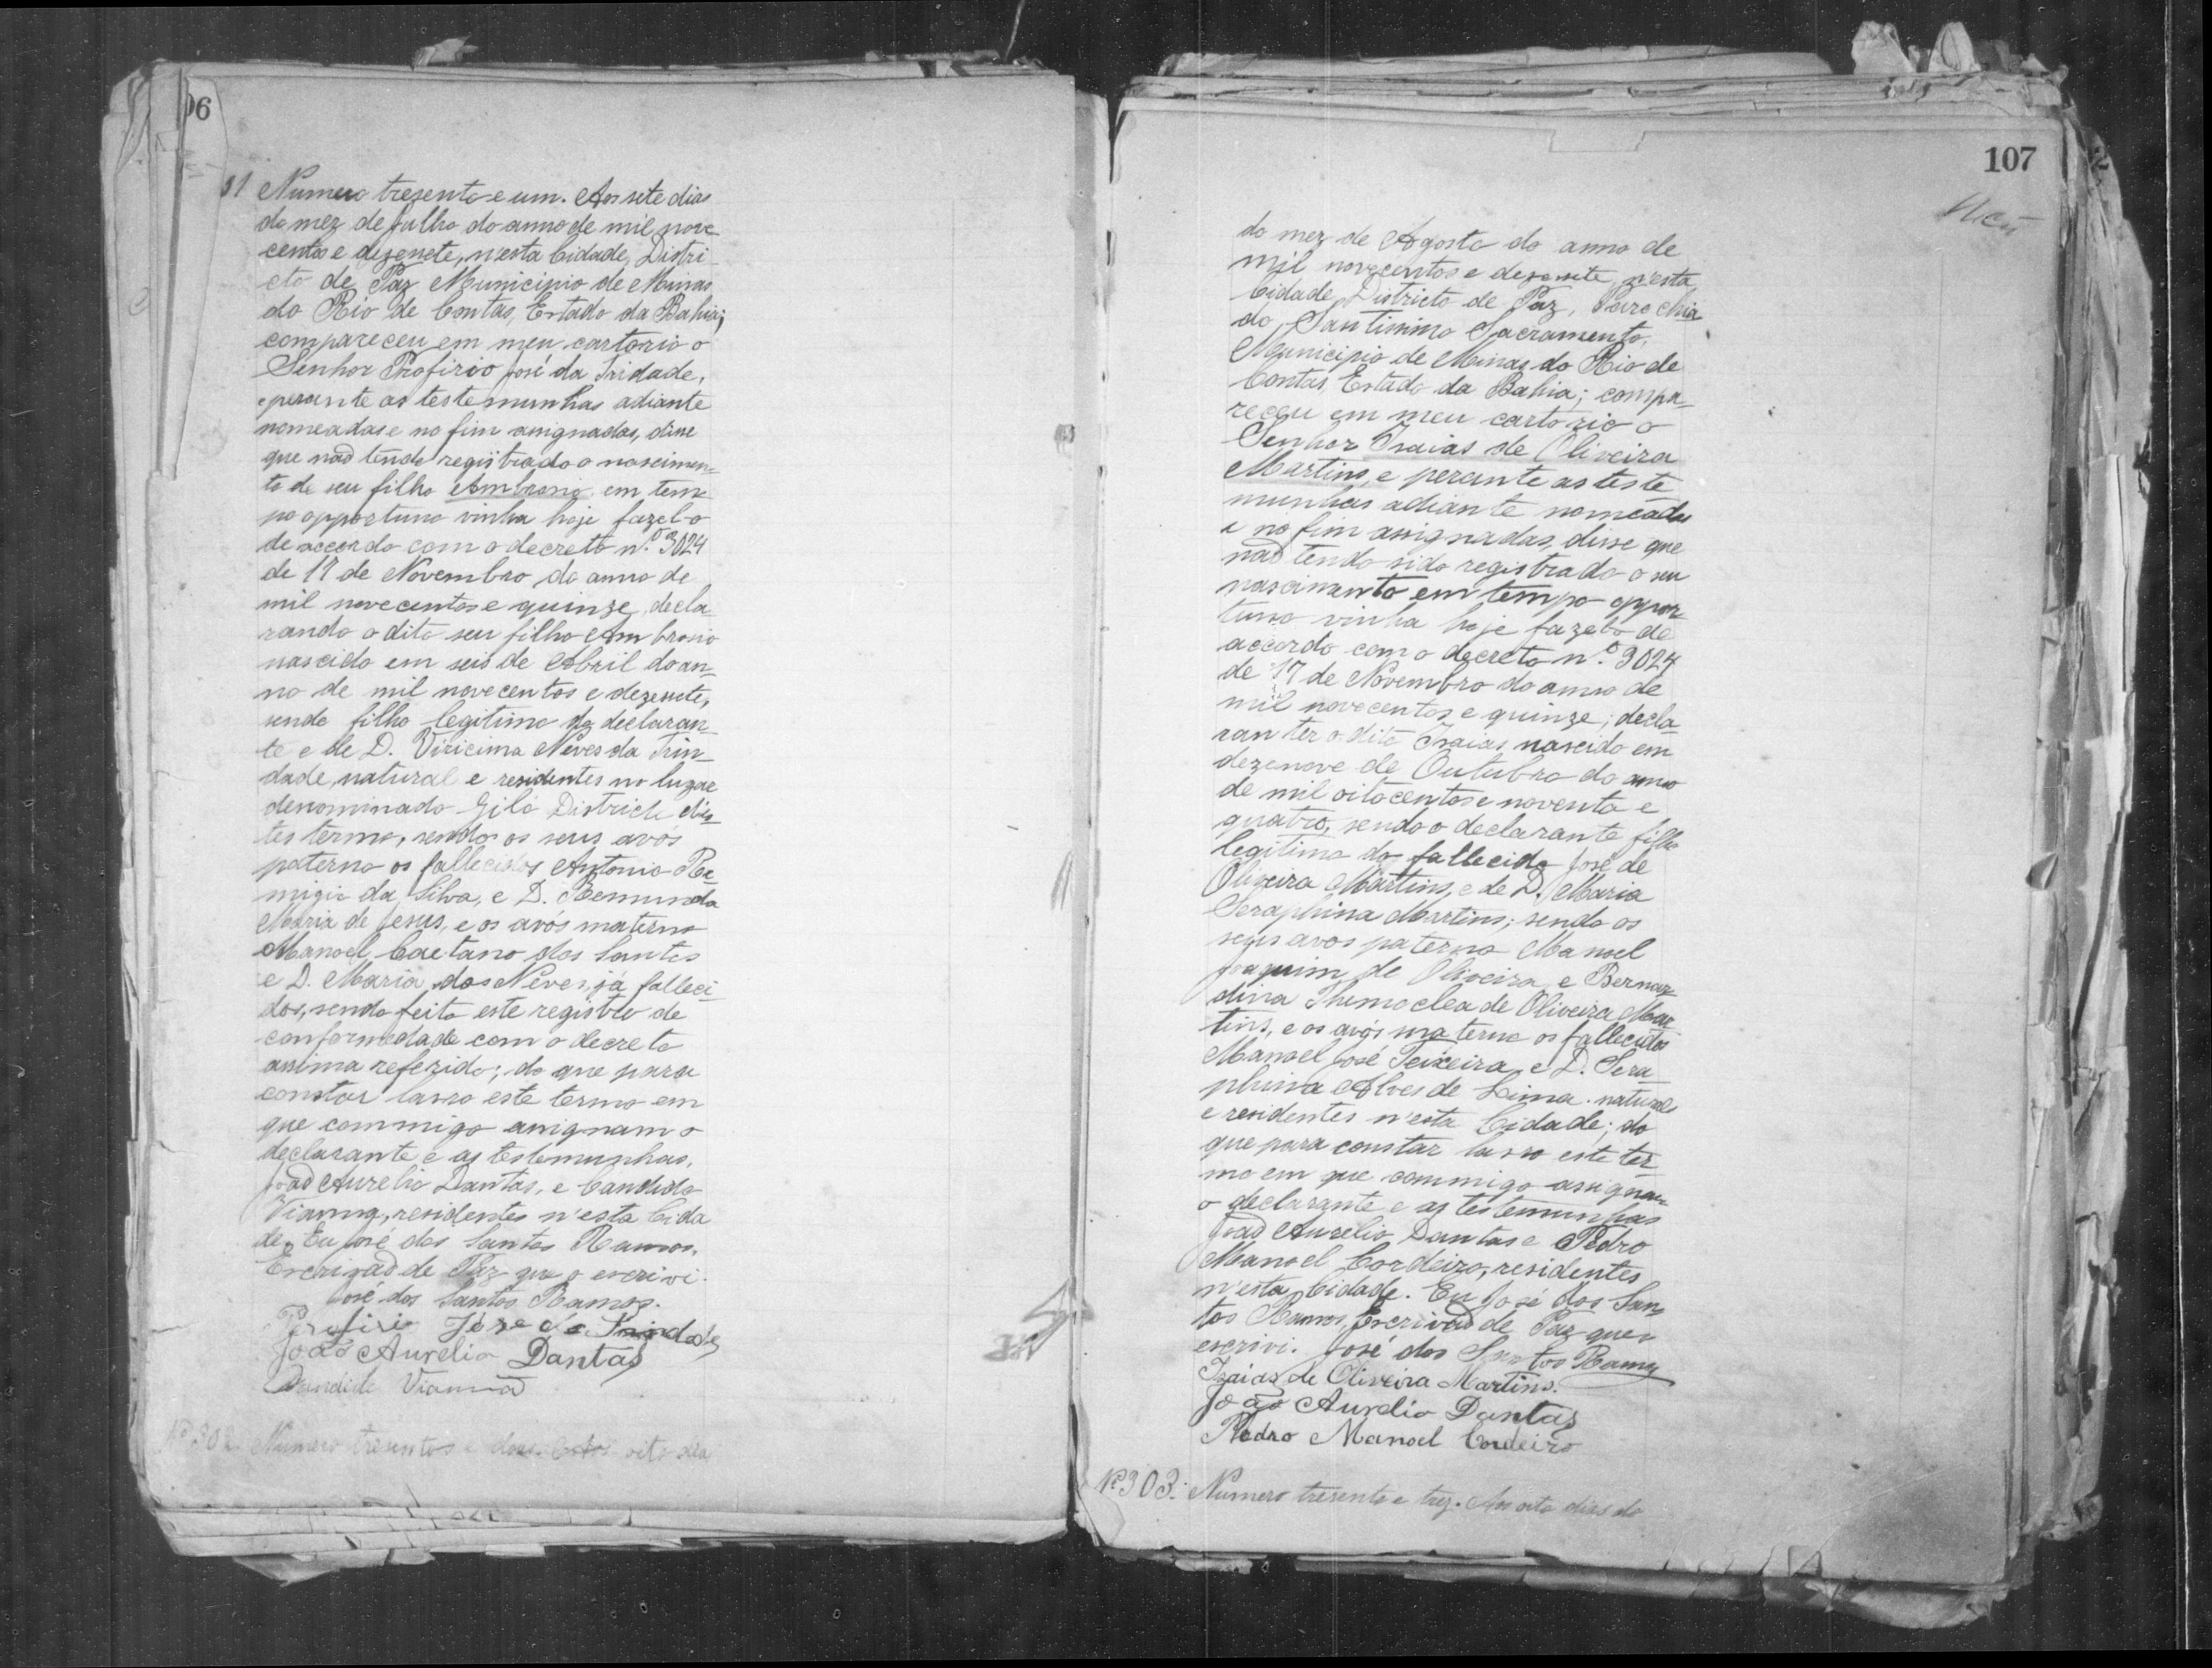 06
31 Numero tresento e um. Aos sete dias
do mez de Julho do anno de mil nove
centos e dezesete, n'esta Cidade, Distri
cto de Paz Municipio de Minas
do Rio de Contas, Estado da Bahia;
compareceu em meu cartorio o
Senhor Profirio José da Tridade,
e perante as testemunhas adiante
nomeadas e no fim assignadas, disse
que não tendo registrado o nascimen-
to de seu filho Ambrosio em tem
po opportuno vinha hoje fazel-o
de accordo com o decreto n.º 3024
de 17 de Novembro do anno de
mil novecentos e quinze, decla
rando o dito seu filho Ambrosio
nascido em seis de Abril do an-
no de mil novecentos e dezesete,
sendo filho legitimo do declaran-
te e de D. Viricima Neves da Trin-
dade, natural e residentes no lugar
denominado Giló Districto d'es-
tes termo, sendo os seus avós
paterno os fallecidos Antonio Re-
migio da Silva, e D. Remunda
Maria de Jesus, e os avós materno
Manoel Caetano dos Santos
e D. Maria das Neves, já falleci-
dos, sendo feito este registro de
conformidade com o decreto
assima referido; do que para
constar lavro este termo em
que commigo assignam o
declarante e as testemunhas,
João Aurelio Dantas, e Candido
Vianna, residentes n'esta Cida
de. Eu José dos Santos Ramos,
Escrivão de Paz que o escrivi.
José dos Santos Ramos.
Profirio José da Trindade
João Aurelio Dantas
Candido Vianna
Nº 302. Numero tresentos e dous. Aos oito dias
107
do mez de Agosto do anno de
mil novecentos e dezesete, n'esta
Cidade, Districto de Paz, Parochia
do Santissimo Sacramento,
Municipio de Minas do Rio de
Contas, Estado da Bahia; compa-
receu em meu cartorio o
Senhor Isaias de Oliveira
Martins, e perante as teste
munhas adiante nomeadas
e no fim assignadas, disse que
não tendo sido registrado o seu
nascimento em tempo oppor
tuno vinha hoje fazel-o de
accordo com o decreto n.º 3024
de 17 de Novembro do anno de
mil novecentos e quinze; decla-
ran ter o dito Isaias nascido em
dezenove de Outubro do anno
de mil oitocentos e noventa e
quatro, sendo o declarante filho
legitimo do fallecido José de
Oliveira Martins, e de D. Maria
Seraphina Martins; sendo os
seus avos paterno Manoel
Joaquim de Oliveira e Bernar
dina Themoclea de Oliveira Mar
tins, e os avós materno os fallecidos
Manoel José Teixeira, e D. Sera-
phina Alves de Lima. naturaes
e residentes n'esta Cidade; do
que para constar lavro este ter
mo em que commigo assignam
o declarante e as testemunhas
João Aurelio Dantas e Pedro
Manoel Cordeiro, residentes
n'esta Cidade. Eu José dos San
tos Ramos, Escrivão de Paz que o
escrivi. José dos Santos Ramos
Isaias de Oliveira Martins.
João Aurelio Dantas
Pedro Manoel Cordeiro
Nº 303. Numero tresento e trez. Aos oito dias do